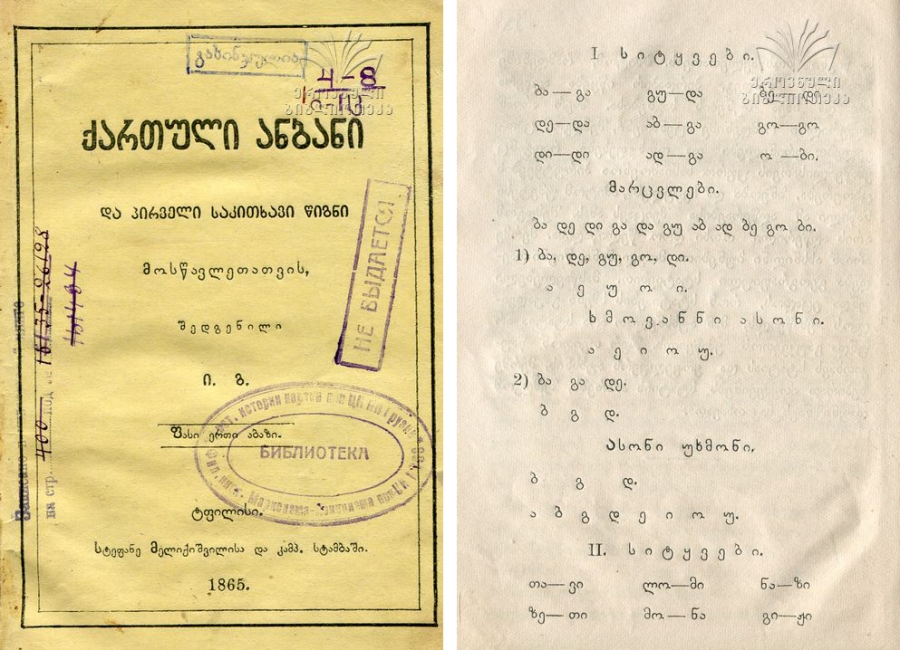 გასინჯულია
4-8
ქართული ანბანი
და პირველი საკითხავი წიგნი
მოსწავლეთათვის,
შედგენილი
ი. გ.
ფასი ერთი აბაზი.
ტფილისი.
სტეფანე მელიქიშვილისა და კამპ. სტამბაში.
1865.
НЕ ВЫДАЕТСЯ
БИБЛИОТЕКА
I. სიტყვები.
ეროვნული
ბიბლიოთეკა
ბა—გა გუ—და ბე—დი
დე—და აბ—გა გო—გო
დი—დი ად—გა ო—ბი.
მარცვლები.
ბა დე დი გა და გუ აბ ად ბე გო ბი.
1) ბა, დე, გუ, გო, დი.
ა ე უ ო ი.
ხმოვანნი ასონი.
ა ე ი ო უ.
2) ბა გა დე.
ბ გ დ.
ასონი უხმონი.
ბ გ დ.
ა ბ გ დ ე ი ო უ.
II. სიტყვები.
თა—ვი ლო—მი ნა—ზი
ზე—თი მო—ნა გი—ჟი